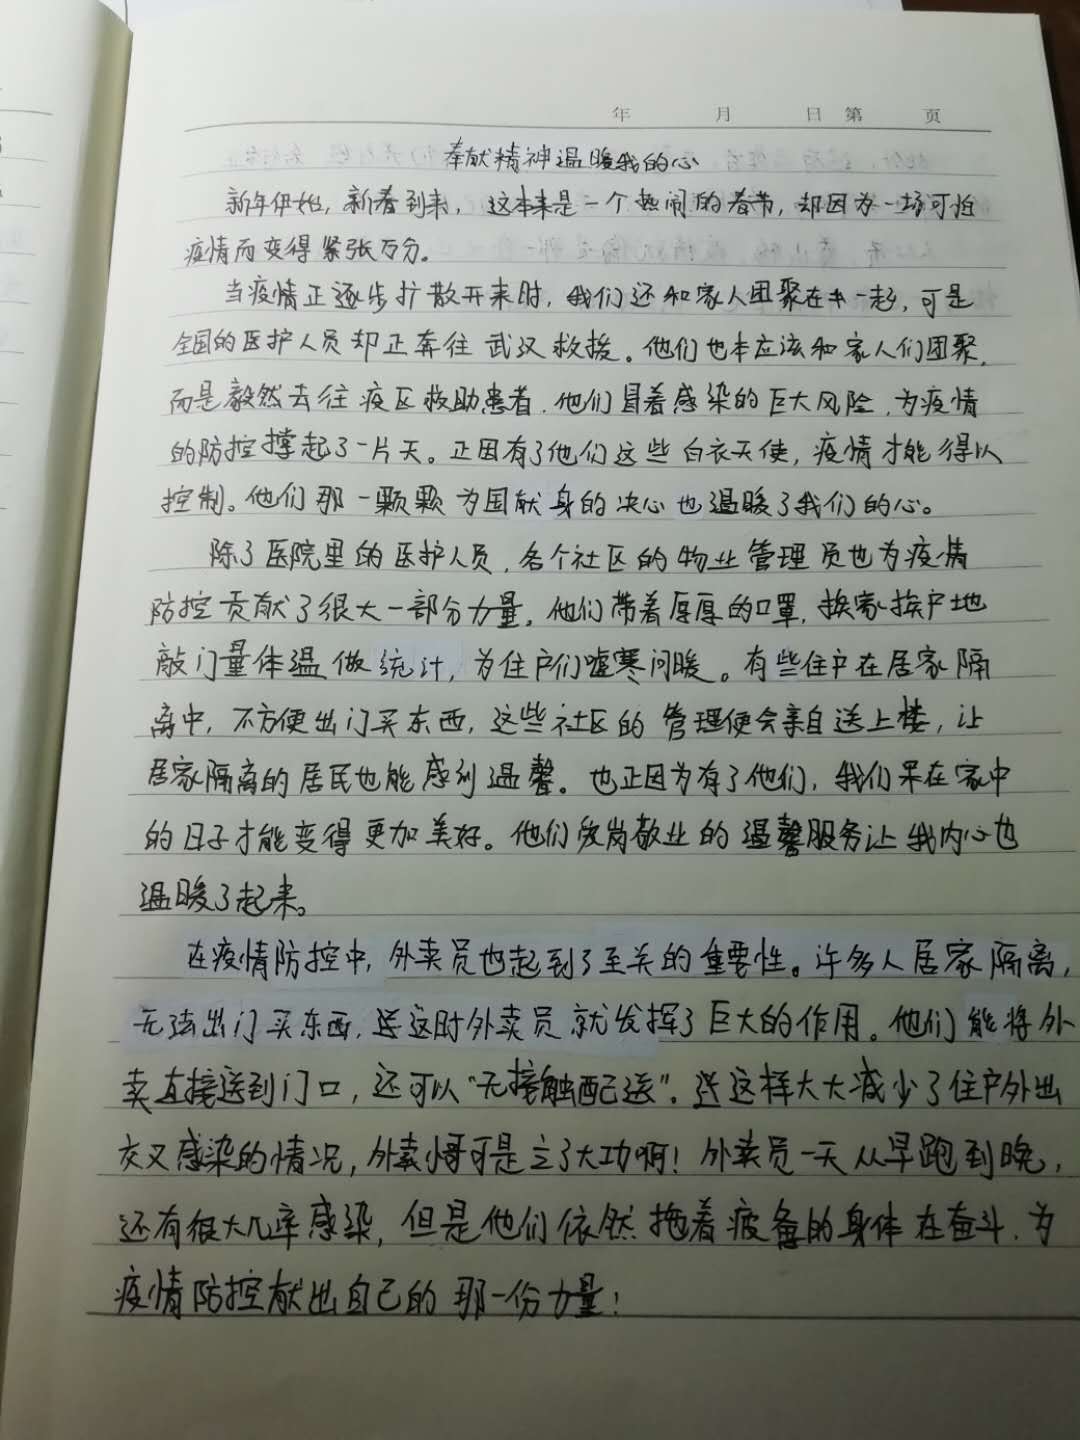 年 月 日 第 页
奉献精神温暖我的心
新年伊始，新春到来，这本来是一个热闹的春节，却因为一场可怕
疫情而变得紧张万分。
当疫情正逐步扩散开来时，我们还和家人团聚在一起，可是
全国的医护人员却正奔往武汉救援。他们也本应该和家人们团聚，
而是毅然去往疫区救助患者，他们冒着感染的巨大风险，为疫情
的防控撑起了一片天。正因有了他们这些白衣天使，疫情才能得以
控制。他们那一颗颗为国献身的决心也温暖了我们的心。
除了医院里的医护人员，各个社区的物业管理员也为疫情
防控贡献了很大一部分力量，他们带着厚厚的口罩，挨家挨户地
敲门量体温做统计，为住户们嘘寒问暖。有些住户在居家隔
离中，不方便出门买东西，这些社区的管理便会亲自送上楼，让
居家隔离的居民也能感到温馨。也正因为有了他们，我们呆在家中
的日子才能变得更加美好。他们爱岗敬业的温馨服务让我内心也
温暖了起来。
在疫情防控中，外卖员也起到了至关的重要性。许多人居家隔离，
无法出门买东西，这时外卖员就发挥了巨大的作用。他们能将外
卖直接送到门口，还可以“无接触配送”。这样大大减少了住户外出
交叉感染的情况，外卖小哥可是立了大功啊！外卖员一天从早跑到晚，
还有很大几率感染，但是他们依然拖着疲惫的身体在奋斗，为
疫情防控献出自己的那一份力量！